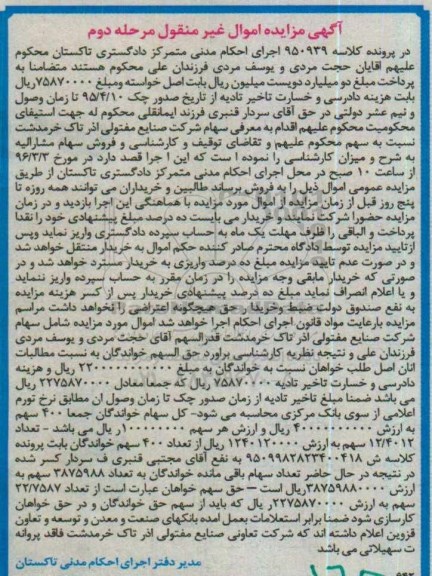 آگهی مزایده اموال غیر منقول مرحله دوم
در پرونده کلاسه ۹۵۰۹۳۹ اجرای احکام مدنی متمرکز دادگستری تاکستان محکوم
علیهم آقایان حجت مردی و یوسف مردی فرزندان علی محکوم هستند متضامنا به
پرداخت مبلغ دو میلیارد دویست میلیون ریال بابت اصل خواسته ومبلغ ۷۵۸۷۰۰۰۰ ریال
بابت هزینه دادرسی و خسارت تاخیر تادیه از تاریخ صدور چک ۹۵/۴/۱۰ تا زمان وصول
و نیم عشر دولتی در حق آقای سردار قنبری فرزند ایمانقلی محکوم له جهت استیفای
محکومیت محکوم علیهم اقدام به معرفی سهام شرکت صنایع مفتولی آذر تاک خرمدشت
نسبت به سهم محکوم علیهم و تقاضای توقیف و کارشناسی و فروش سهام مشارالیه
به شرح و میزان کارشناسی را نموده است که این اجرا قصد دارد در مورخ ۹۶/۳/۳
از ساعت ۱۰ صبح در محل اجرای احکام مدنی متمرکز دادگستری تاکستان از طریق
مزایده عمومی اموال ذیل را به فروش برساند طالبین و خریداران می توانند همه روزه تا
پنج روز قبل از زمان مزایده از اموال مورد مزایده با هماهنگی این اجرا بازدید و در زمان
مزایده حضورا شرکت نمایند خریدار می بایست ده درصد مبلغ پیشنهادی خود را نقدا
پرداخت و الباقی را ظرف مهلت یک ماه به حساب سپرده دادگستری واریز نماید وپس
از تایید مزایده توسط دادگاه محترم صادر کننده حکم اموال به خریدار منتقل خواهد شد
و در صورت عدم تایید مزایده مبلغ ده درصد واریزی به خریدار مسترد خواهد شد و در
صورتی که خریدار مابقی وجه مزایده را در زمان مقرر به حساب سپرده واریز ننماید
و یا اعلام انصراف نماید مبلغ ده درصد پیشنهادی خریدار پس از کسر هزینه مزایده
به نفع صندوق دولت ضبط وخریدار حق هیچگونه اعتراضی را نخواهد داشت مراسم
مزایده بارعایت مواد قانون اجرای احکام اجرا خواهد شد اموال مورد مزایده شامل سهام
شرکت صنایع مفتولی آذر تاک خرمدشت قدرالسهم آقای حجت مردی و یوسف مردی
فرزندان علی و نتیجه نظریه کارشناسی براورد حق السهم خواندگان به نسبت مطالبات
آنان اصل طلب خواهان نسبت به خواندگان به مبلغ ۲۲۰۰۰۰۰۰۰۰ ریال و هزینه
دادرسی و خسارت تاخیر تادیه ۷۵۸۷۰۰۰۰ ریال که جمعا معادل ۲۲۷۵۸۷۰۰۰۰ ریال
می باشد ضمنا مبلغ تاخیر تادیه از زمان صدور چک تا زمان وصول آن مطابق نرخ تورم
اعلامی از سوی بانک مرکزی محاسبه می شود- کل سهام خواندگان جمعا ۴۰۰ سهم
به ارزش ریال و ارزش هر سهم ریال می باشد - تعداد
۱۲/۴۰۱۲ سهم به ارزش ۱۲۴۰۱۲۰۰۰۰ ریال از تعداد ۴۰۰ سهم خواندگان بابت پرونده
کلاسه ش به نفع آقای مجتبی قنبری ف سردار کسر شده
در نتیجه در حال حاضر تعداد سهام باقی مانده خواندگان به تعداد ۳۸۷۵۹۸۸ سهم به
ارزش ریال است – حق سهم خواهان عبارت است از تعداد ۲۲/۷۵۸۷
سهم به ارزش ۲۲۷۵۸۷۰۰۰۰ ریال که باید از سهم حق خواندگان و در حق خواهان
کارسازی شود ضمنا برابر استعلامات بعمل آمده بانکهای صنعت و معدن و توسعه و تعاون
قزوین اعلام داشته اند که شرکت تعاونی صنایع مفتولی آذر تاک خرمدشت فاقد پروانه
ت سهیلاتی می باشد
مدیر دفتر اجرای احکام مدنی تاکستان